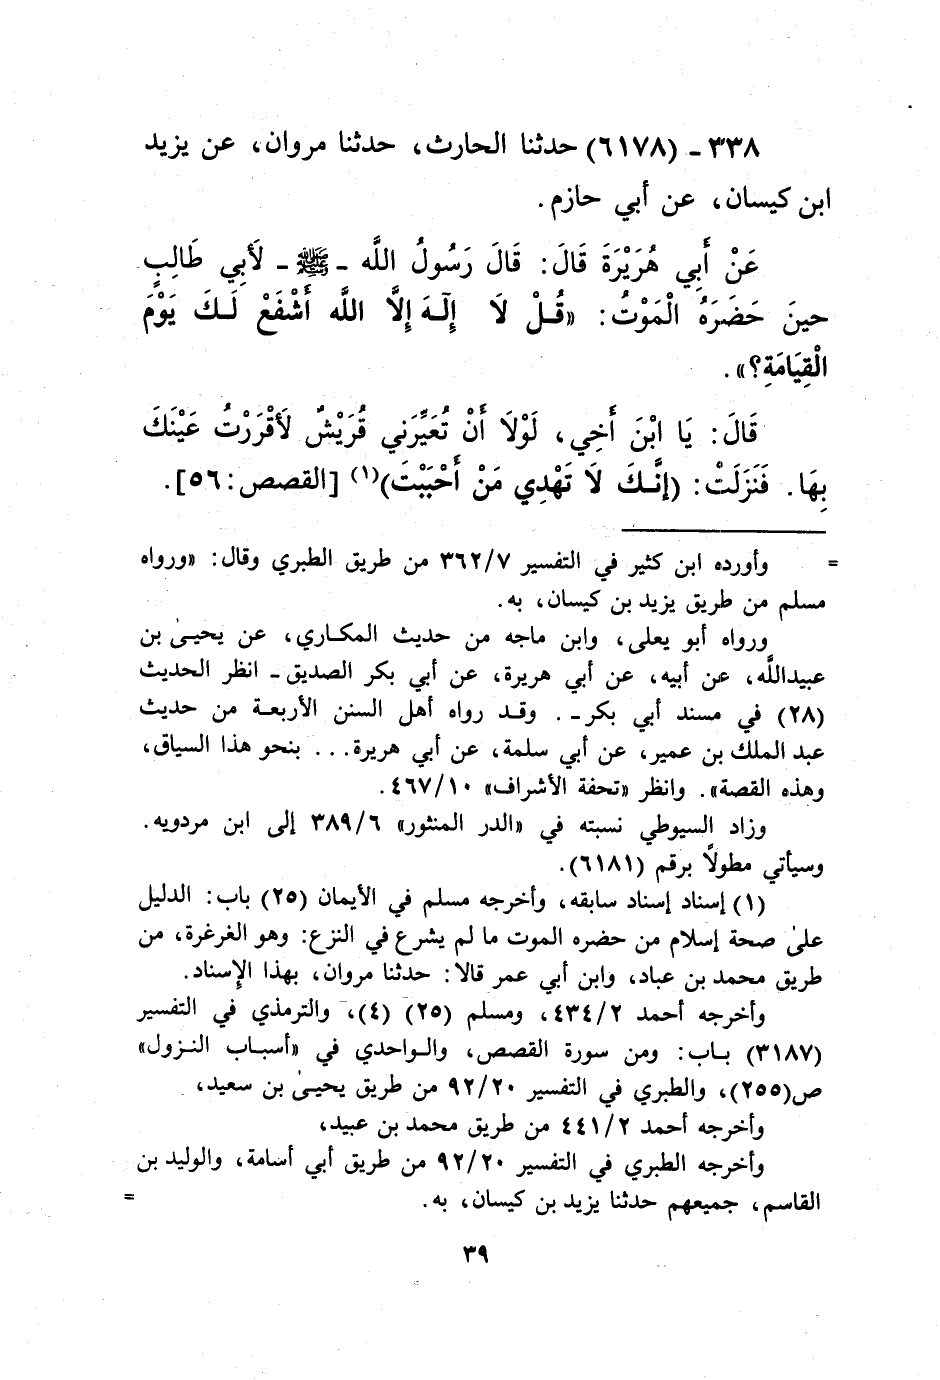 ٣٣٨ ـ (٦١٧٨) حدثنا الحارث، حدثنا مروان، عن يزيد
ابن كيسان، عن أبي حازم.
عَنْ أَبِي هُرَيْرَةَ قَالَ: قَالَ رَسُولُ اللَّه ـ ﷺ ـ لَأبِي طَالِبٍ
حينَ حَضَرَهُ الْمَوْتُ: «قُـلْ لَا إِلٓـهَ إِلَّا اللَّه أَشْفَعْ لَـكَ يَوْمَ
الْقِيَامَةِ؟».
قَالَ: يَا ابْنَ أَخِي، لَوْلَا أَنْ تُعَيِّرَنِي قُرَيْشٌ لَأقْرَرْتُ عَيْنَكَ
بِهَا. فَنَزَلَتْ: (إِنَّـكَ لَا تَهْدِي مَنْ أَحْبَبْتَ)(١) [القصص: ٥٦].
= وأورده ابن كثير في التفسير ٣٦٢/٧ من طريق الطبري وقال: «ورواه
مسلم من طريق يزيد بن كيسان، به.
ورواه أبو يعلى، وابن ماجه من حديث المكـاري، عن يحيىٰ بن
عبيداللَّه، عن أبيه، عن أبي هريرة، عن أبي بكر الصديق ـ انظر الحديث
(٢٨) في مسند أبي بكر ـ. وقـد رواه أهل السنن الأربعـة من حديث
عبد الملك بن عمير، عن أبي سلمة، عن أبي هريرة... بنحو هذا السياق،
وهذه القصة». وانظر «تحفة الأشراف» ٤٦٧/١٠.
وزاد السيوطي نسبته في «الدر المنثور» ٣٨٩/٦ إلى ابن مردويه.
وسيأتي مطولًا برقم (٦١٨١).
(١) إسناد إسناد سابقه، وأخرجه مسلم في الأيمان (٢٥) باب: الدليل
علىٰ صحة إسلام من حضره الموت ما لم يشرع في النزع: وهو الغرغرة، من
طريق محمد بن عباد، وابن أبي عمر قالا: حدثنا مروان، بهذا الإسناد.
وأخرجه أحمد ٤٣٤/٢، ومسلم (٢٥) (٤)، والترمذي في التفسير
(٣١٨٧) بـاب: ومن سورة القصص، والـواحدي في «أسبـاب النـزول»
ص(٢٥٥)، والطبري في التفسير ٩٢/٢٠ من طريق يحيىٰ بن سعيد،
وأخرجه أحمد ٤٤١/٢ من طريق محمد بن عبيد،
وأخرجه الطبري في التفسير ٩٢/٢٠ من طريق أبي أسامة، والوليد بن
القاسم، جميعهم حدثنا يزيد بن كيسان، به. =
٣٩